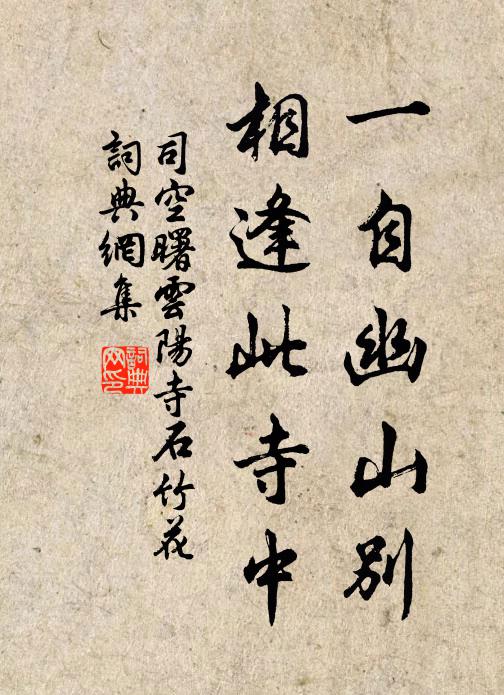 一自幽山別
相逢此寺中
司空曙雲陽寺石竹花
詞典網集
詞典網印